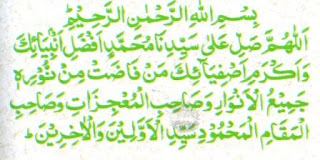 بِسْمِ اللهِ الرَّحْمٰنِ الرَّحِيْمِ
اَللّٰهُمَّ صَلِّ عَلٰى سَيِّدِنَا مُحَمَّدٍ اَفْضَلِ اَنْبِيَائِكَ
وَاَكْرَمِ اَصْفِيَائِكَ مَنْ فَاضَتْ مِنْ نُوْرِهٖ
جَمِيْعُ الْاَنْوَارِ وَصَاحِبِ الْمُعْجِزَاتِ وَصَاحِبِ
الْمَقَامِ الْمَحْمُوْدِ سَيِّدِ الْاَوَّلِيْنَ وَالْاٰخِرِيْنَ ط